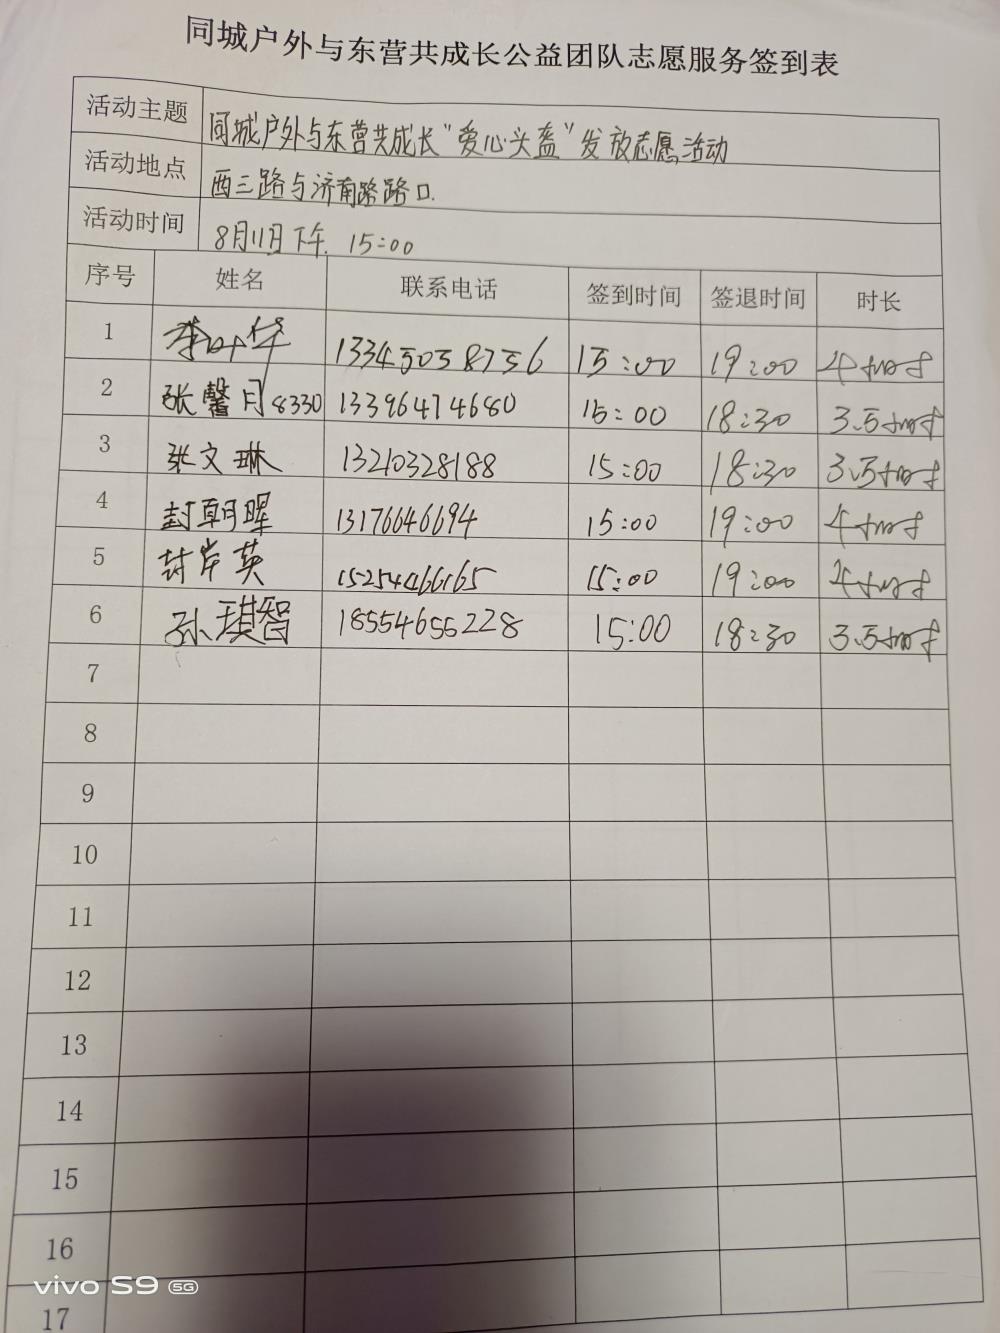 同城户外与东营共成长公益团队志愿服务签到表
活动主题 同城户外与东营共成长“爱心头盔”发放志愿活动
活动地点 西三路与济南路路口.
活动时间 8月11日下午. 15:00
序号 姓名 联系电话 签到时间 签退时间 时长
1 李叶华 13345058756 15:00 19:00 4小时
2 张馨月8330 13396474680 15:00 18:30 3.5小时
3 张文琳 13210328188 15:00 18:30 3.5小时
4 封朝晖 13176646694 15:00 19:00 4小时
5 封岸英 15254466165 15:00 19:00 4小时
6 孙琪智 18554655228 15:00 18:30 3.5小时
7
8
9
10
11
12
13
14
15
16
17
vivo S9 5G